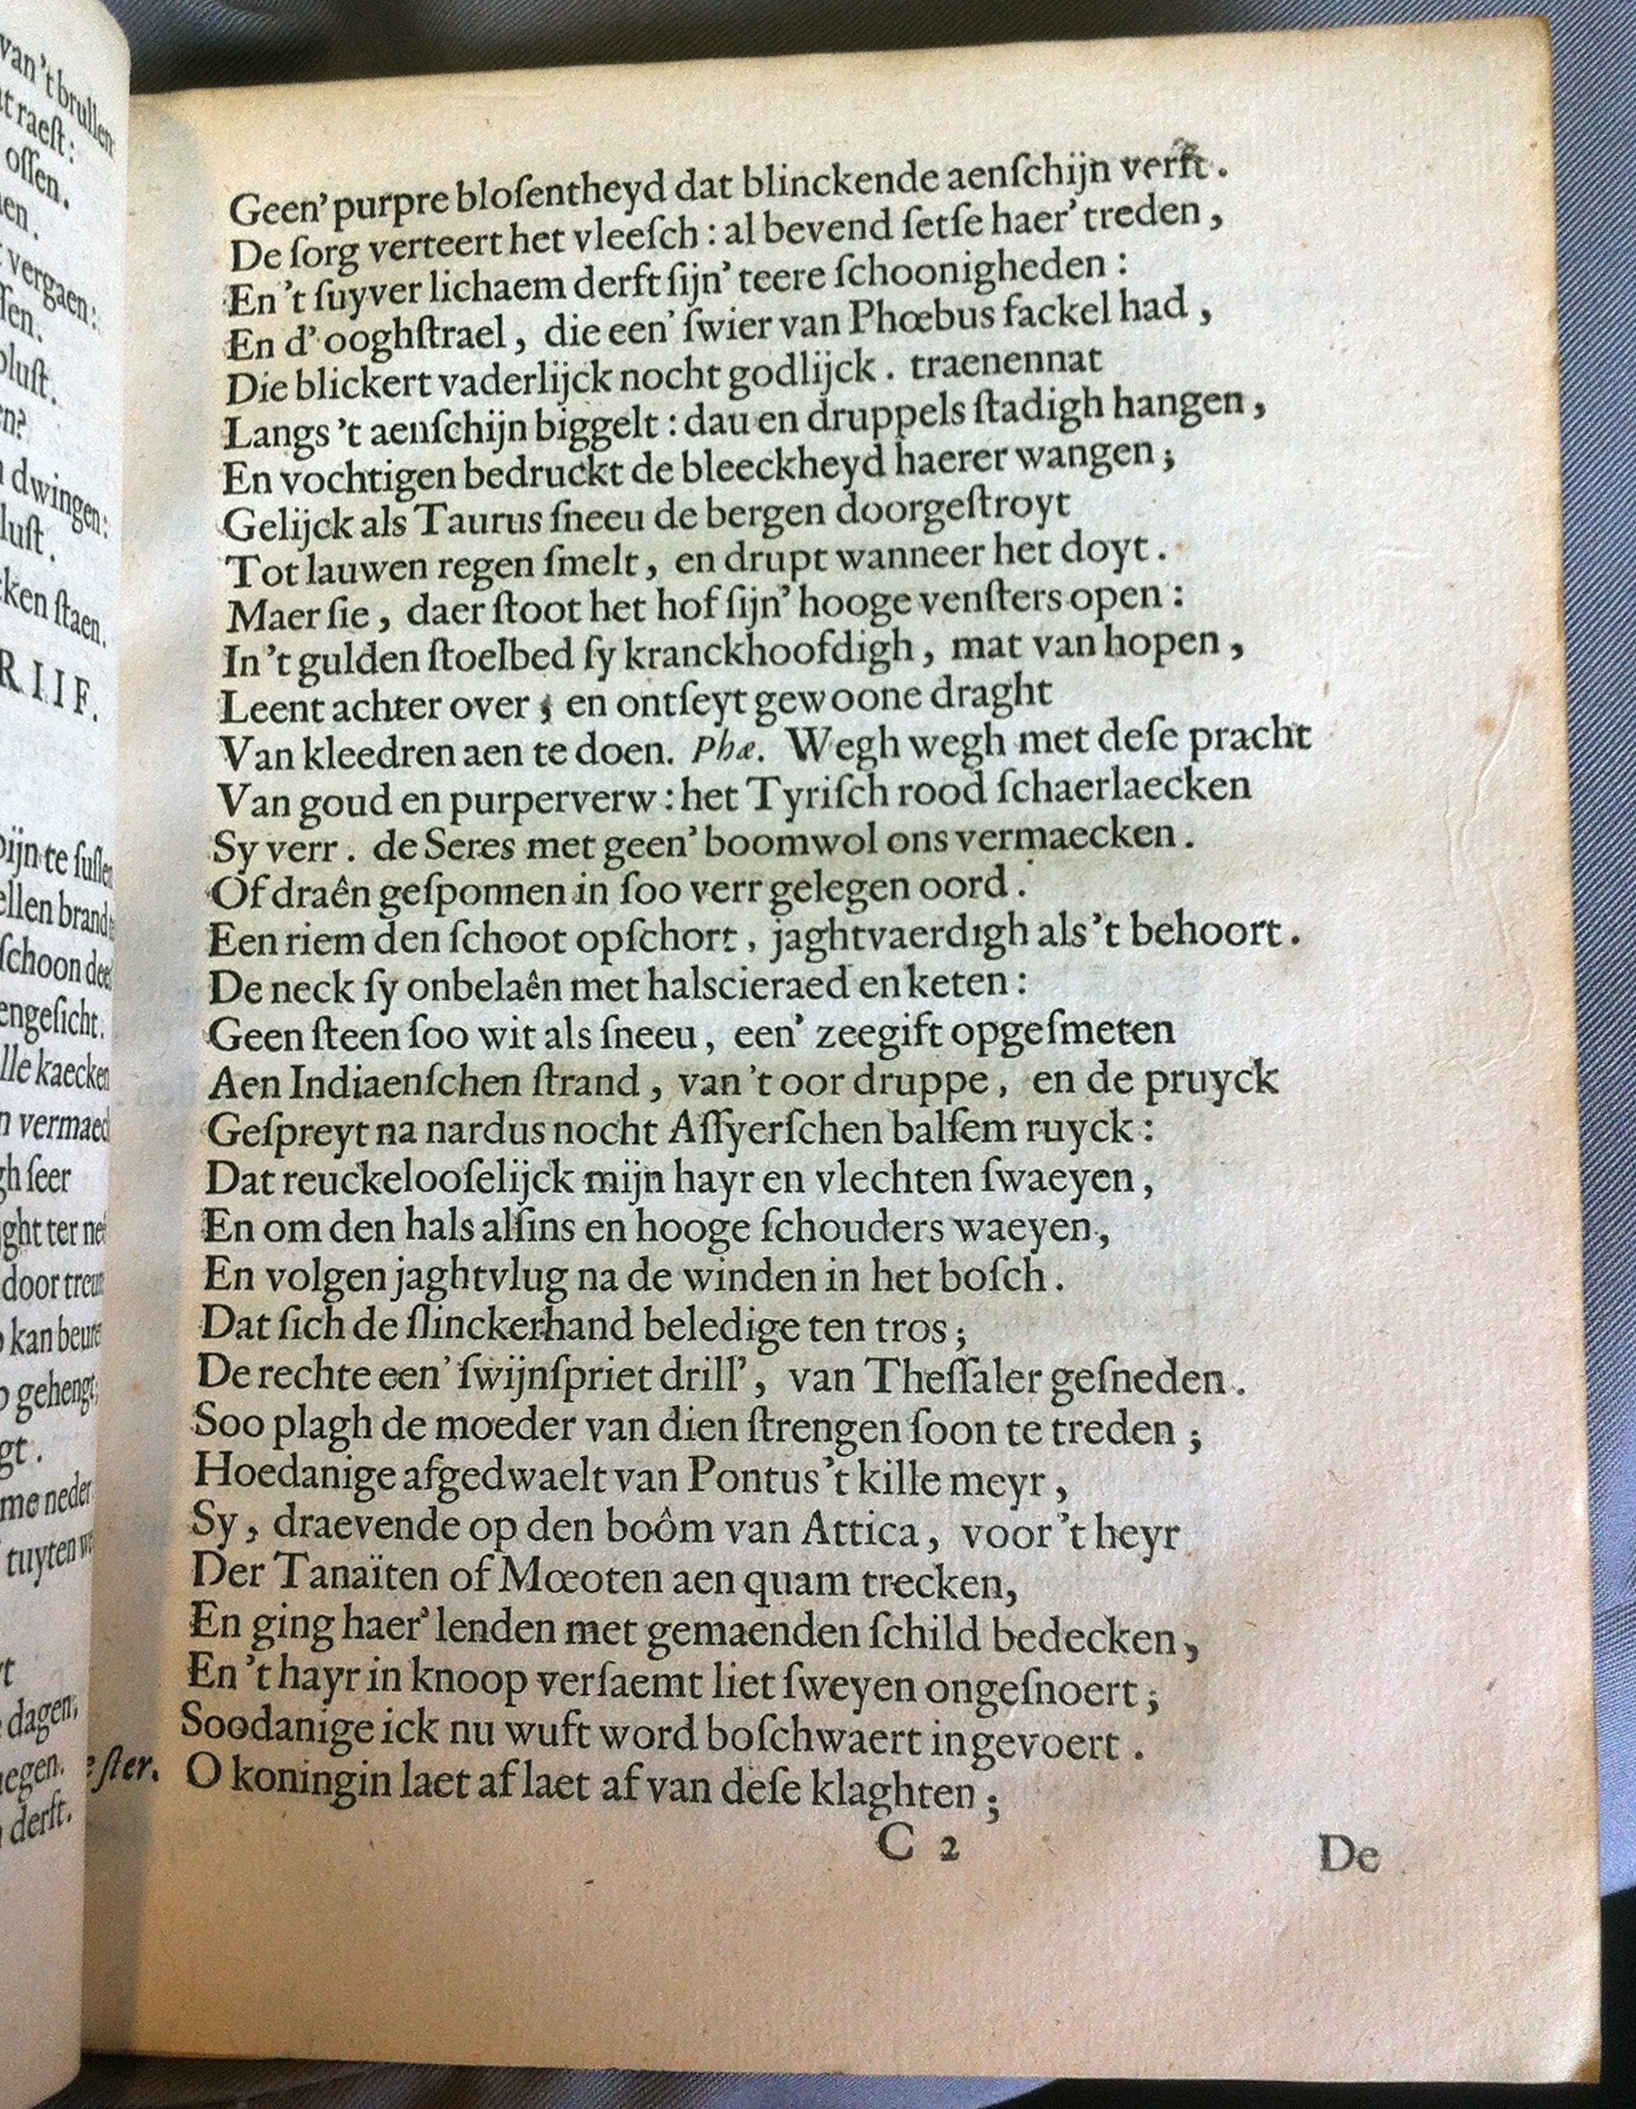 van 't brullen
t raeſt:
oſſen.
en.
vergaen:
ſen.
luſt.
n?
dwingen:
luſt.
ken ſtaen.
RIIF.
pijn te ſuſſen
ellen brand
ſchoon deel
engeſicht.
lle kaecken
n vermaec
gh ſeer
ght ter ne
door treur
kan beure
gehengt,
gt.
me neder
tuyten w
t
dagen,
egen.
derft.
Geen' purpre bloſentheyd dat blinckende aenſchijn verft.
De ſorg verteert het vleeſch: al bevend ſetſe haer' treden,
En 't ſuyver lichaem derft ſijn' teere ſchoonigheden:
En d' ooghſtrael, die een' ſwier van Phœbus fackel had,
Die blickert vaderlijck nocht godlijck. traenennat
Langs 't aenſchijn biggelt: dau en druppels ſtadigh hangen,
En vochtigen bedruckt de bleeckheyd haerer wangen;
Gelijck als Taurus ſneeu de bergen doorgeſtroyt
Tot lauwen regen ſmelt, en drupt wanneer het doyt.
Maer ſie, daer ſtoot het hof ſijn' hooge venſters open:
In 't gulden ſtoelbed ſy kranckhoofdigh, mat van hopen,
Leent achter over; en ontſeyt gewoone draght
Van kleedren aen te doen. Phæ. Wegh wegh met deſe pracht
Van goud en purperverw: het Tyriſch rood ſchaerlaecken
Sy verr. de Seres met geen' boomwol ons vermaecken.
Of draên geſponnen in ſoo verr gelegen oord.
Een riem den ſchoot opſchort, jaghtvaerdigh als 't behoort.
De neck ſy onbelaên met halscieraed en keten:
Geen ſteen ſoo wit als ſneeu, een' zeegift opgeſmeten
Aen Indiaenſchen ſtrand, van 't oor druppe, en de pruyck
Geſpreyt na nardus nocht Aſſyerſchen balſem ruyck:
Dat reuckelooſelijck mijn hayr en vlechten ſwaeyen,
En om den hals alſins en hooge ſchouders waeyen,
En volgen jaghtvlug na de winden in het boſch.
Dat ſich de ſlinckerhand beledige ten tros;
De rechte een' ſwijnſpriet drill', van Theſſaler geſneden.
Soo plagh de moeder van dien ſtrengen ſoon te treden;
Hoedanige afgedwaelt van Pontus 't kille meyr,
Sy, draevende op den boôm van Attica, voor 't heyr
Der Tanaïten of Mœoten aen quam trecken,
En ging haer' lenden met gemaenden ſchild bedecken,
En 't hayr in knoop verſaemt liet ſweyen ongeſnoert;
Soodanige ick nu wuft word boſchwaert ingevoert.
eſter. O koningin laet af laet af van deſe klaghten;
C 2 De